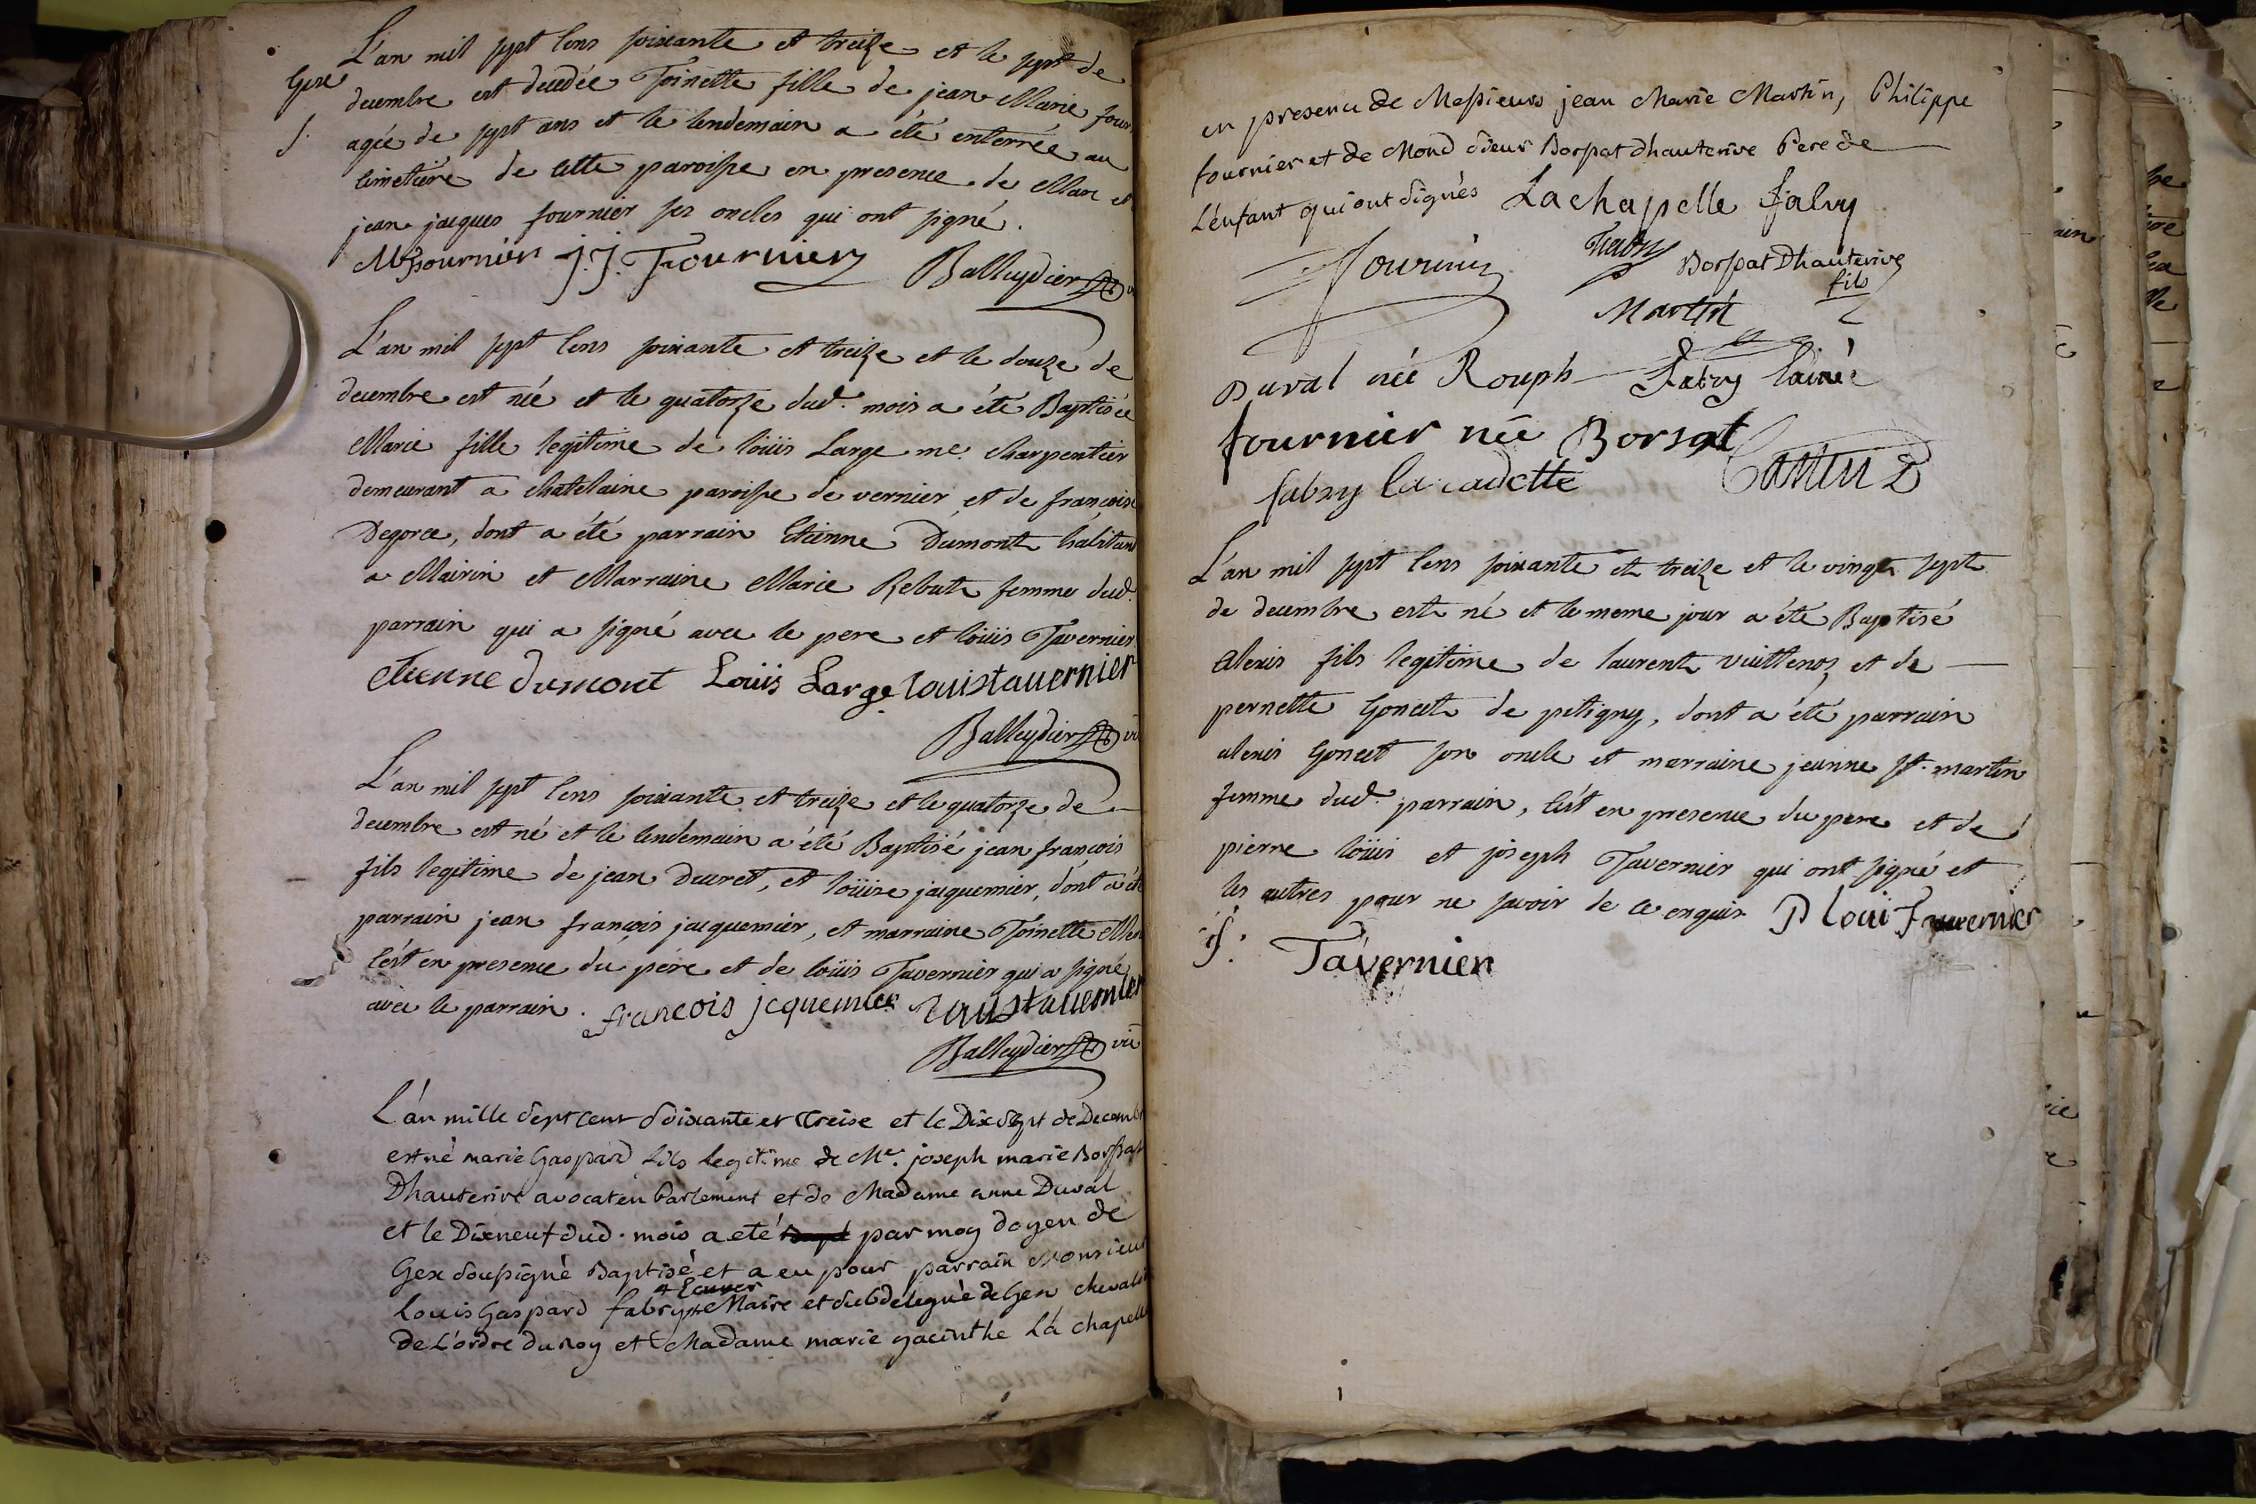 L'an mil sept Cens soixante et treize et le sept de
Gex
decembre est decedée Toinette fille de jean Marie four
S.
agée de sept ans et le lendemain a été enterrée au
cimetiere de cette paroisse en presence de Marc et
jean jaques fournier ses oncles qui ont signé.
M fournier j. j. Fournier Balleydier
L'an mil sept Cens soixante et treize et le douze de
decembre est née et le quatorze dud. mois a été Baptisée
Marie fille legitime de loüis Large me. charpentier
demeurant a chatelaine paroisse de vernier et de françoise
Degorce, dont a été parrain Etienne Dumont habitant
a Mairin et Marraine Marie Rebut femme dud.
parrain qui a signé avec le pere et loüis Tavernier.
etienne dumont Loüis Large louis tauernier
Balleydier
L'an mil sept Cens soixante et treize et le quatorze de
decembre est né et le lendemain a été Baptisé jean françois
fils legitime de jean Decret, et loüise jaquemier, dont a été
parrain jean françois jaquemier, et marraine Toinette
C'est en presence du pére et de loüis Tavernier qui a signé
avec le parrain. francois jcquemier louis tauernier
Balleydier vic
L'an mille sept cent soixante et treise et le Dix sept de Decemb
est né marie Gaspard fils legitime de Me. joseph marie Borssat
Dhauterive avocat en Parlement et de Madame anne Duval
et le Dixneuf dud. mois a eté par moy doyen de
Gex soussigné Baptisé et a eu pour parrain Monsieur
Louis Gaspard fabry Maire et subdelegué de Gex chevali
+ Ecuyer
de L'ordre du Roy et Madame marie yacinthe La chapelle
en presence de Messieurs jean Marie Martin, Philippe
fournier et de Mond sieur Borssat dhauterive Pere de
L'enfant qui ont signés Lachapelle fabry
fournier fabry Borssat Dhauterive
fils
Martin
Duval née Rouph fabry lainé
fournier née Borsat
fabry la cadette Castin
L'an mil sept Cens soixante et treize et le vingt sept
de decembre est né et le meme jour a été Baptisé
alexis fils legitime de laurent vuittenoz et de
pernette Goncet de petigny, dont a été parrain
alexis Goncet son oncle et marraine jeanne st. martin
femme dud. parrain, C'est en presence du pere et de
pierre loüis et joseph Tavernier qui ont signé et
les autres pour ne savoir de ce enquis P loui Tauernier
j f. Tavernier